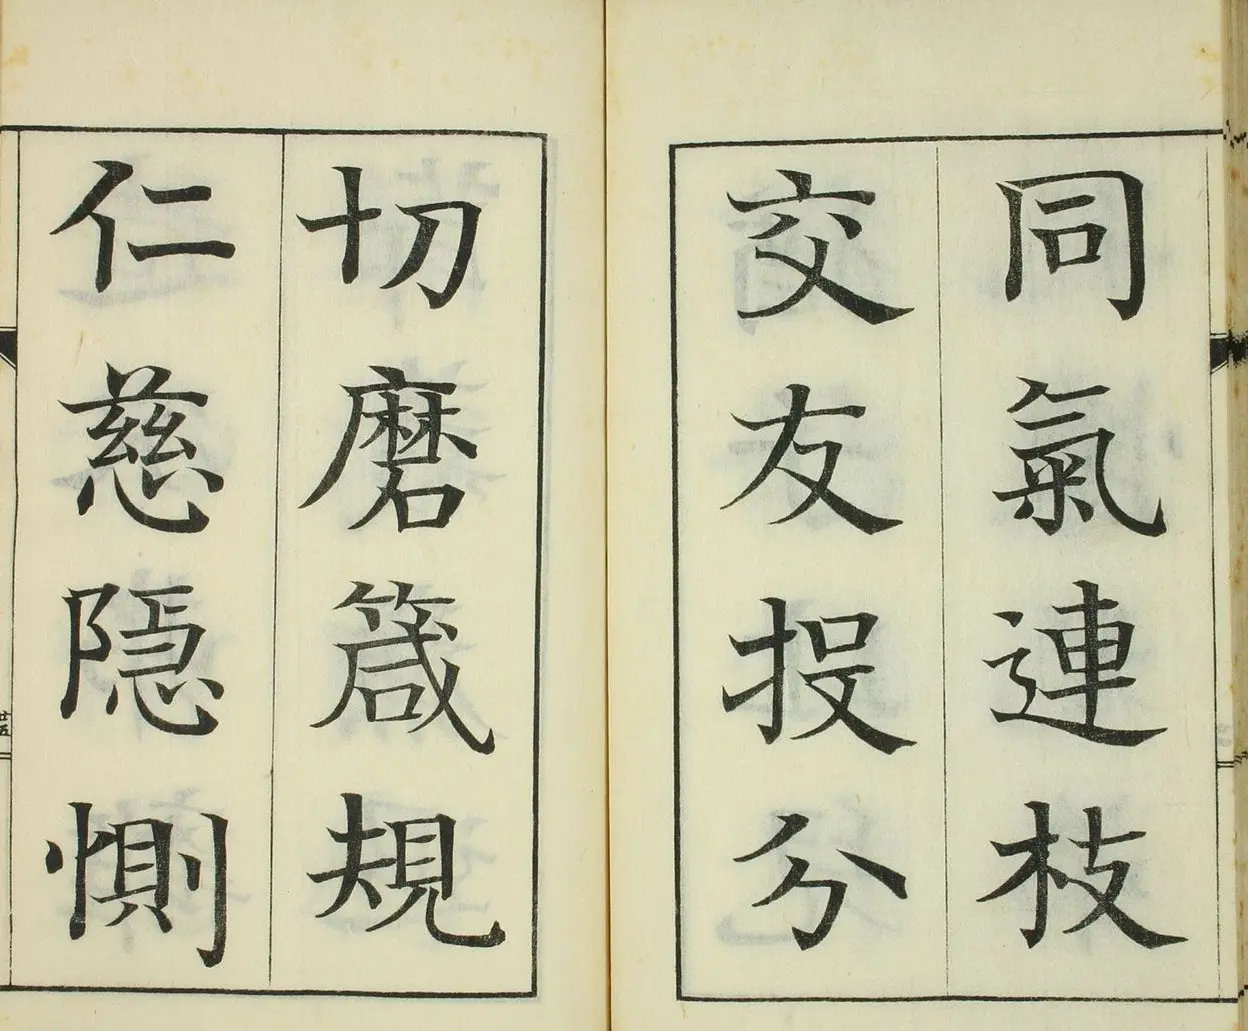 同氣連枝
交友投分
切磨箴規
仁慈隱惻
廿五